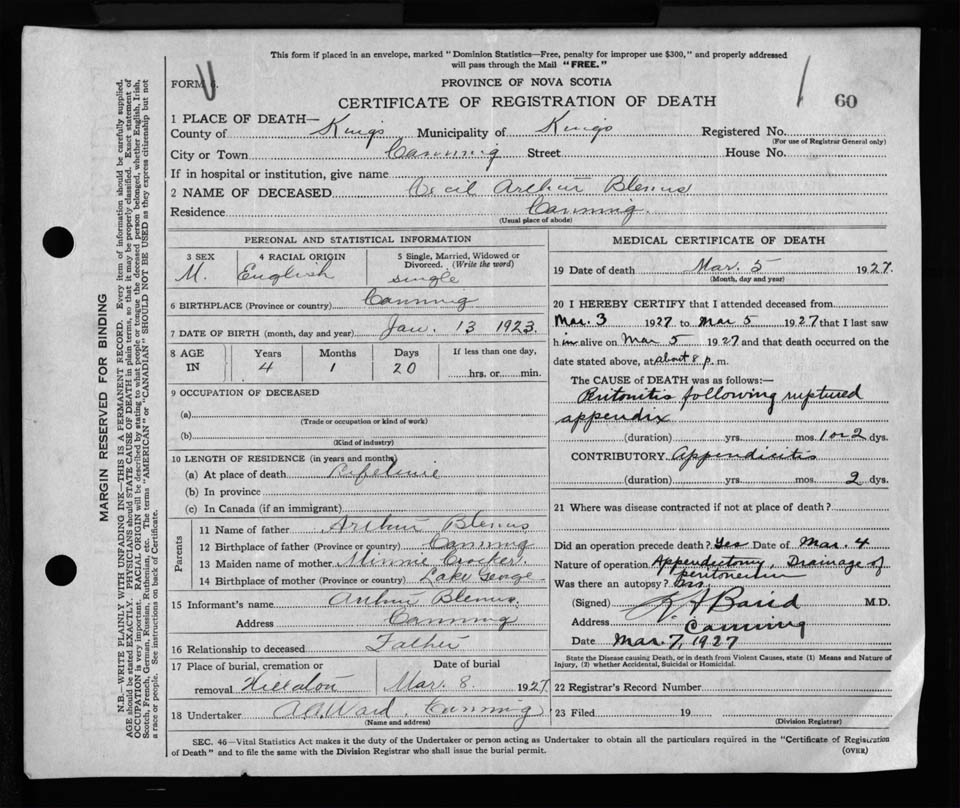 This form if placed in an envelope, marked "Dominion Statistics—Free, penalty for improper use $300," and properly addressed
will pass through the Mail "FREE."
PROVINCE OF NOVA SCOTIA
FORM
CERTIFICATE OF REGISTRATION OF DEATH
60
1 PLACE OF DEATH—
County of Kings Municipality of Kings Registered No.
(For use of Registrar General only)
City or Town Canning Street House No.
If in hospital or institution, give name
2 NAME OF DECEASED Cecil Arthur Blenus
Residence Canning
(Usual place of abode)
PERSONAL AND STATISTICAL INFORMATION
3 SEX 4 RACIAL ORIGIN 5 Single, Married, Widowed or Divorced. (Write the word)
M. English single
6 BIRTHPLACE (Province or country) Canning
7 DATE OF BIRTH (month, day and year) Jan. 13 1923
8 AGE IN Years Months Days If less than one day,
4 1 20 hrs. or min.
9 OCCUPATION OF DECEASED
(a)
(Trade or occupation or kind of work)
(b)
(Kind of industry)
10 LENGTH OF RESIDENCE (in years and months)
(a) At place of death Lifetime
(b) In province
(c) In Canada (if an immigrant)
Parents
11 Name of father Arthur Blenus
12 Birthplace of father (Province or country) Canning
13 Maiden name of mother Minnie Crocker
14 Birthplace of mother (Province or country) Lake George
15 Informant's name Arthur Blenus
Address Canning
16 Relationship to deceased Father
17 Place of burial, cremation or Date of burial
removal Hillaton Mar. 8. 1927
18 Undertaker A.A. Ward Canning
(Name and address)
MEDICAL CERTIFICATE OF DEATH
19 Date of death Mar. 5 1927.
(Month, day and year)
20 I HEREBY CERTIFY that I attended deceased from
Mar. 3 1927 to Mar 5 1927 that I last saw
him alive on Mar 5 1927 and that death occurred on the
date stated above, at about 8 p. m.
The CAUSE of DEATH was as follows:—
Peritonitis following ruptured
appendix
(duration) yrs. mos. 1 or 2 dys.
CONTRIBUTORY Appendicitis
(duration) yrs. mos. 2 dys.
21 Where was disease contracted if not at place of death?
Did an operation precede death? Yes Date of Mar. 4
Nature of operation Appendectomy, Drainage of
peritoneum
Was there an autopsy?
(Signed) Baird M.D.
Address Canning
Date Mar. 7, 1927
State the Disease causing Death, or in death from Violent Causes, state (1) Means and Nature of
Injury, (2) whether Accidental, Suicidal or Homicidal.
22 Registrar's Record Number
23 Filed 19
(Division Registrar)
SEC. 46—Vital Statistics Act makes it the duty of the Undertaker or person acting as Undertaker to obtain all the particulars required in the "Certificate of Registration
of Death" and to file the same with the Division Registrar who shall issue the burial permit.
(OVER)
MARGIN RESERVED FOR BINDING
N.B.—WRITE PLAINLY WITH UNFADING INK—THIS IS A PERMANENT RECORD. Every item of information should be carefully supplied.
AGE should be stated EXACTLY. PHYSICIANS should STATE CAUSE OF DEATH in plain terms, so that it may be properly classified. Exact statement of
OCCUPATION is very important. RACIAL ORIGIN will be described by stating to what people or tongue the deceased person belonged, whether English, Irish,
Scotch, French, German, Russian, Ruthenian, etc. The terms "AMERICAN" or "CANADIAN" SHOULD NOT BE USED as they express citizenship but not
a race or people. See instructions on back of Certificate.